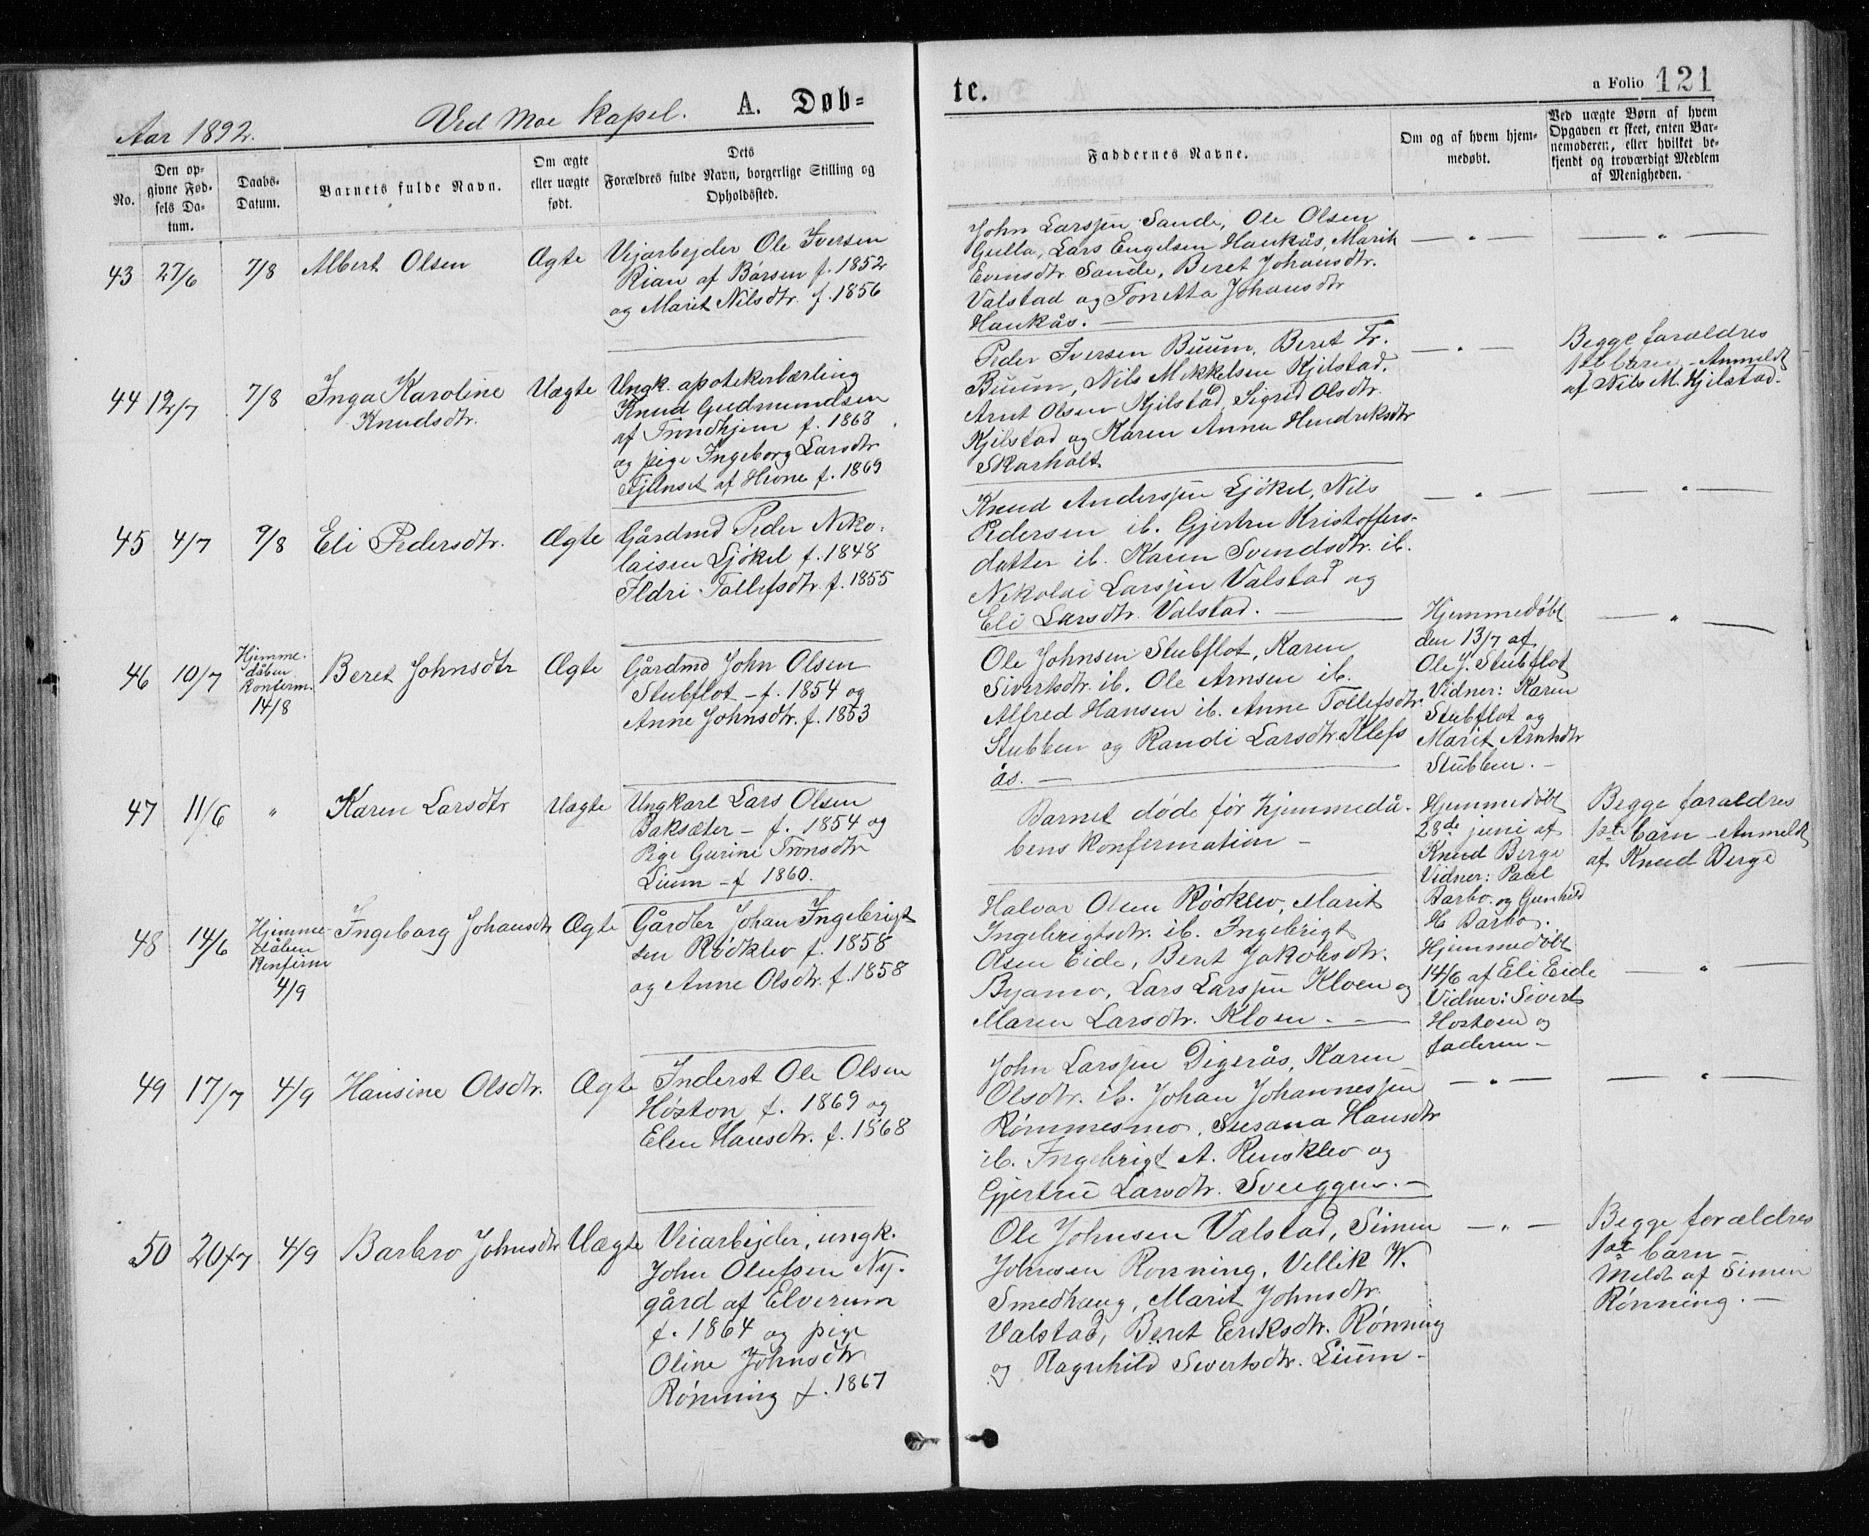 Aar 1892.
Ved Moe kapel.
A. Døb=
te.
a Folio 121
No.
Den op-
givne Fød-
sels Da-
tum.
Daabs-
Datum.
Barnets fulde Navn.
Om ægte
eller uægte
født.
Dets
Forældres fulde Navn, borgerlige Stilling og
Opholdssted.
Faddernes Navne.
Om og af hvem hjem-
medøbt.
Ved uægte Børn af hvem
Opgaven er skeet, enten Bar-
nemoderen, eller hvilket be-
kjendt og troværdigt Medlem
af Menigheden.
43 27/6 7/8 Albert Olsen Ægte
Vejarbejder Ole Iversen
Rian af Børsen f. 1852
og Marit Nilsdtr. f. 1856
John Larssen Sande, Ole Olsen
Gulla, Lars Engelsen Haukås, Marit
Evensdtr. Sande, Beret Johansdtr.
Valstad og Johansdtr
Haukås. —
— " —
— " —
44 12/7 7/8 Inga Karoline
Knudsdtr.
Uægte
Ungk. apotekerlærling
Knud Gudmundsen
af Trondhjem f. 1868
og pige Ingeborg Larsdtr
af Hevne f. 1869
Peder Iversen Buum, Beret Fr.
Buum, Nils Mikkelsen Kjelstad,
Arnt Olsen Kjelstad, Sigrid Olsdtr.
Kjelstad og Karen Anna Hendriksdtr
Skarholt
— " —
Begge foræeldres
1ste barn – Anmeldt
af Nils M. Kjelstad.
45 4/7 9/8 Eli Pedersdtr. Ægte
Gårdmd Peder Niko-
laisen Ljøkel f. 1848
Ildri Tollefsdtr f. 1855
Knud Anderssen Ljøkel, Nils
Pedersen ib. Gjertru Kristoffers-
datter ib. Karen Svendsdtr. ib.
Nikolai Larssen Valstad og
Eli Larsdtr. Valstad. —
— " —
— " —
46 10/7
Hjemme-
dåben
Konferm.
14/8
Beret Johnsdtr Ægte
Gårdmd John Olsen
Stubflot – f. 1854 og
Anne Johnsdtr. f. 1853
Ole Johnsen Stubflot, Karen
Sivertsdtr. ib. Ole Arnsen ib.
Alfred Hansen ib. Anne Tollefsdtr.
Stubben og Randi Larsdtr. Klefs
ås. —
Hjemmedøbt
den 13/7 af
Ole J. Stubflot
Vidner: Karen
Stubflot og
Marit Arntsdtr
Stubben. –
— " —
47 11/6 " Karen Larsdtr Uægte
Ungkarl Lars Olsen
Baksæter – f. 1854 og
Pige Gurine Tronsdtr
Lium – f 1860.
Barnet døde før hjemmedå-
bens konfermation –
Hjemmedøbt
28de juni af
Knud Berge
Vidner: Paul
Barbo. og Gunhild
H. Barbo.
Begge forældres
1ste barn – Anmeldt
af Knud Berge
48 14/6
Hjemme
dåben
Konferm
4/9
Ingeborg Johansdtr Ægte
Gårdbr. Johan Ingebrigt
sen Rødklev f. 1858
og Anne Olsdtr. f. 1858
Halvar Olsen Rødklev, Marit
Ingebrigtsdtr. ib. Ingebrigt
Olsen Eide, Beret Jakobsdtr.
Byamo, Lars Larssen Kloen og
Maren Larsdtr. Kloen. —
Hjemmedøbt
14/6 af Eli Eide
Vidner: Sivert
Hostoen og
faderen –
— " —
49 17/7 4/9 Hansine Olsdtr. Ægte
Inderst Ole Olsen
Høston f. 1869 og
Elen Hansdtr. f. 1868
John Larssen Digerås, Karen
Olsdtr. ib. Johan Johannessen
Rømmesmo, Susana Hansdtr
ib. Ingebrigt A. Rensklev og
Gjertru Larsdtr. Sveggen. –
— " —
— " —
50 20/7 4/9 Barbro Johnsdtr Uægte
Veiarbejder, ungk.
John Olufsen Ny-
gård af Elverum
f. 1864 og pige
Oline Johnsdtr
Rønning f. 1867
Ole Johnsen Valstad, Simen
Johnsen Rønning, Vellik W.
Smedhaug, Marit Johnsdtr.
Valstad, Beret Eriksdtr. Rønning
og Ragnhild Sivertsdtr. Lium –
— " —
Begge forældres
1ste barn –
Meldt af Simen
Rønning. –